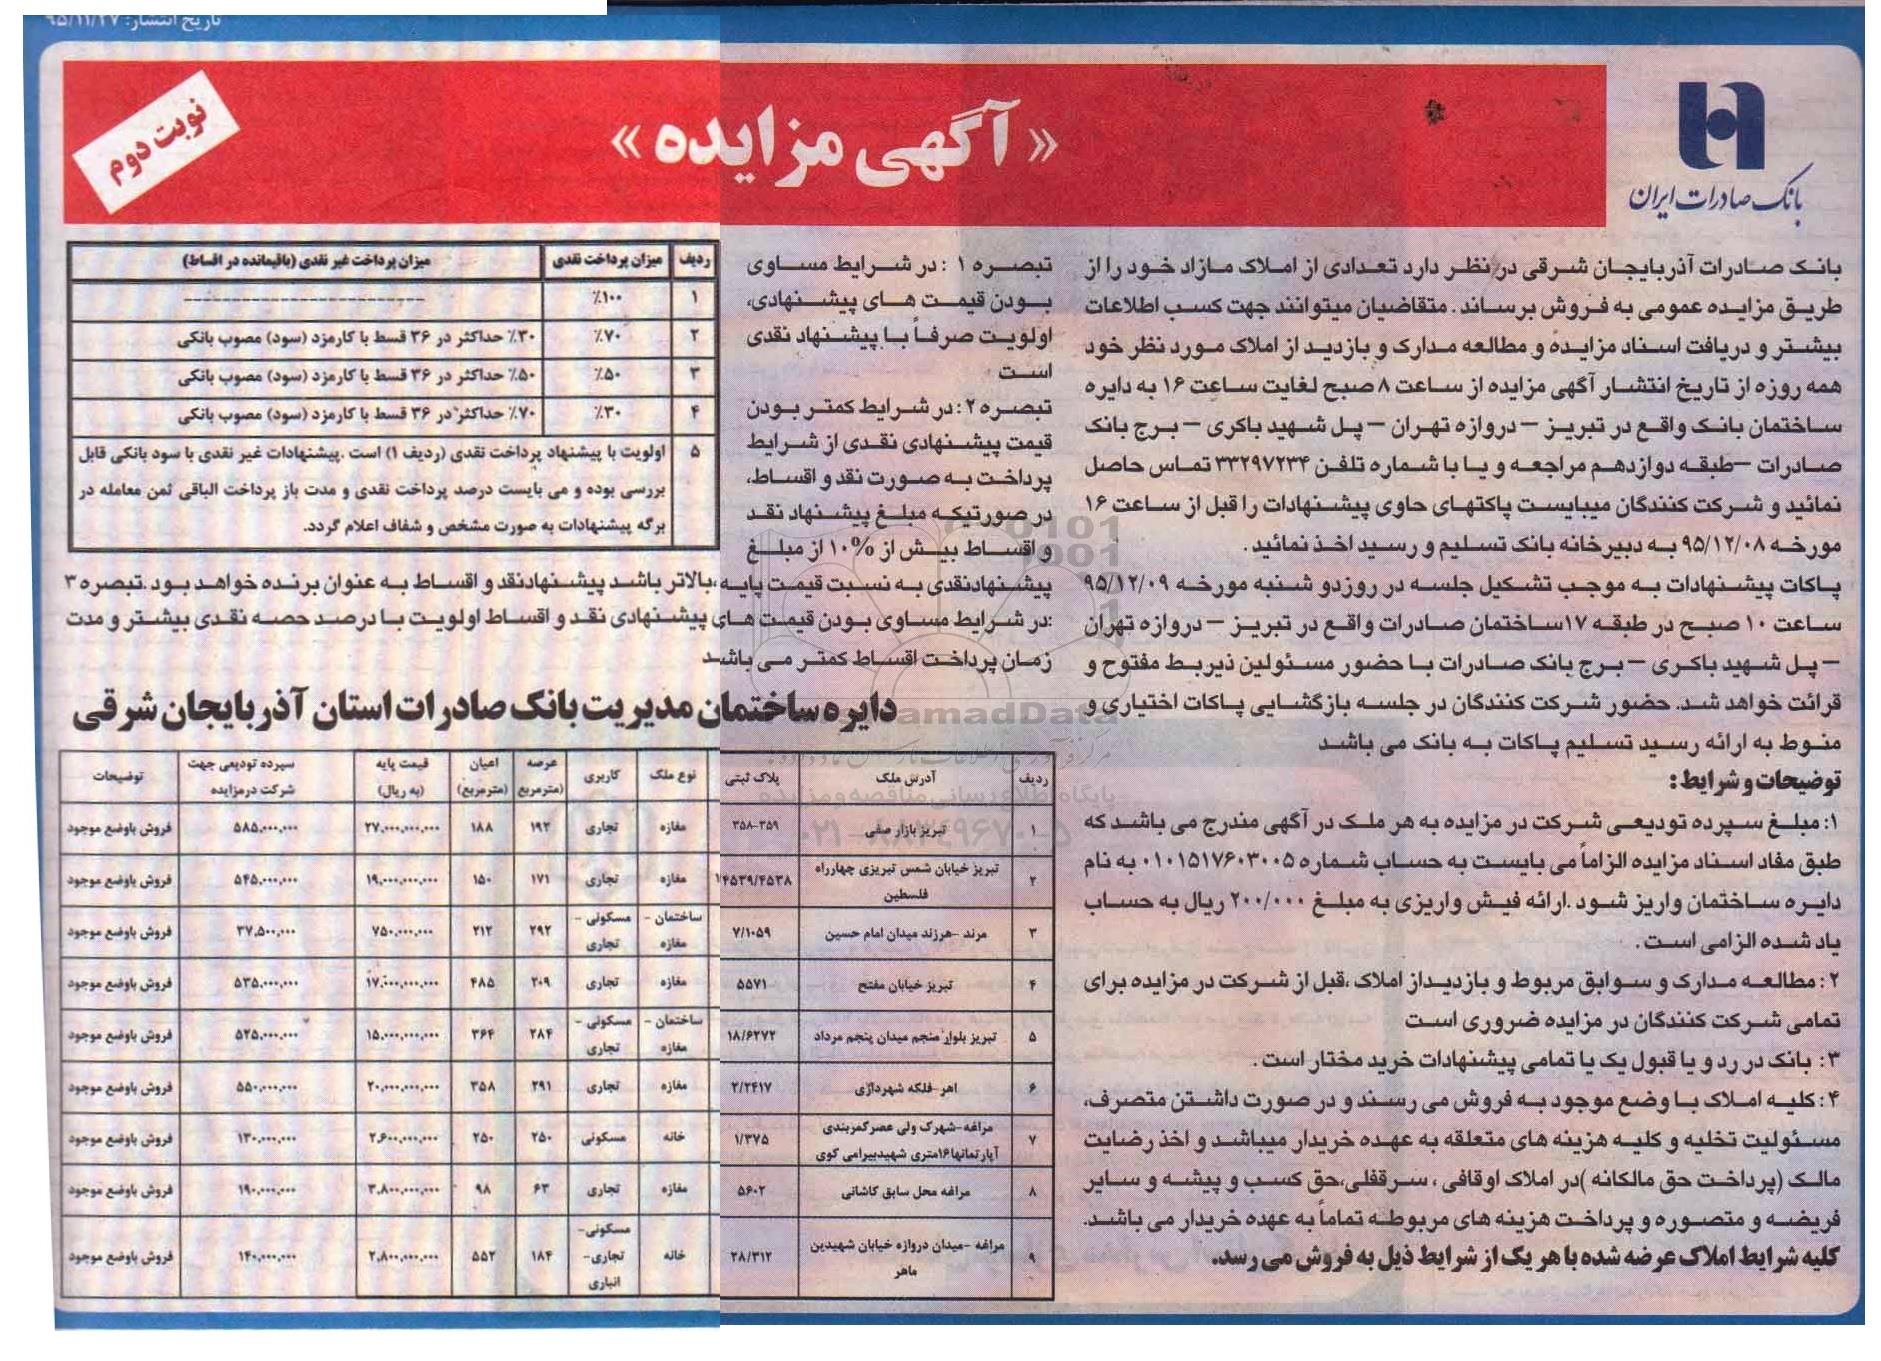 تاریخ انتشار: ۹۵/۱۱/۲۷
« آگهی مزایده »
نوبت دوم
بانک صادرات ایران
بانک صادرات آذربایجان شرقی در نظر دارد تعدادی از املاک مازاد خود را از
طریق مزایده عمومی به فروش برساند . متقاضیان میتوانند جهت کسب اطلاعات
بیشتر و دریافت اسناد مزایده و مطالعه مدارک و بازدید از املاک مورد نظر خود
همه روزه از تاریخ انتشار آگهی مزایده از ساعت ۸ صبح لغایت ساعت ۱۶ به دایره
ساختمان بانک واقع در تبریز – دروازه تهران – پل شهید باکری – برج بانک
صادرات – طبقه دوازدهم مراجعه و یا با شماره تلفن ۳۳۲۹۷۲۳۴ تماس حاصل
نمائید و شرکت کنندگان میبایست پاکتهای حاوی پیشنهادات را قبل از ساعت ۱۶
مورخه ۹۵/۱۲/۰۸ به دبیرخانه بانک تسلیم و رسید اخذ نمائید .
پاکات پیشنهادات به موجب تشکیل جلسه در روز دو شنبه مورخه ۹۵/۱۲/۰۹
ساعت ۱۰ صبح در طبقه ۱۷ ساختمان صادرات واقع در تبریز – دروازه تهران
– پل شهید باکری – برج بانک صادرات با حضور مسئولین ذیربط مفتوح و
قرائت خواهد شد. حضور شرکت کنندگان در جلسه بازگشایی پاکات اختیاری و
منوط به ارائه رسید تسلیم پاکات به بانک می باشد
توضیحات و شرایط :
۱: مبلغ سپرده تودیعی شرکت در مزایده به هر ملک در آگهی مندرج می باشد که
طبق مفاد اسناد مزایده الزاماً می بایست به حساب شماره ۰۱۰۱۵۱۷۶۰۳۰۰۵ به نام
دایره ساختمان واریز شود .ارائه فیش واریزی به مبلغ ۲۰۰/۰۰۰ ریال به حساب
یاد شده الزامی است .
۲: مطالعه مدارک و سوابق مربوط و بازدید از املاک ،قبل از شرکت در مزایده برای
تمامی شرکت کنندگان در مزایده ضروری است
۳: بانک در رد و یا قبول یک یا تمامی پیشنهادات خرید مختار است .
۴: کلیه املاک با وضع موجود به فروش می رسند و در صورت داشتن متصرف،
مسئولیت تخلیه و کلیه هزینه های متعلقه به عهده خریدار میباشد و اخذ رضایت
مالک (پرداخت حق مالکانه )در املاک اوقافی ، سرقفلی،حق کسب و پیشه و سایر
فریضه و متصوره و پرداخت هزینه های مربوطه تماماً به عهده خریدار می باشد.
کلیه شرایط املاک عرضه شده با هر یک از شرایط ذیل به فروش می رسد.
ردیف میزان پرداخت نقدی میزان پرداخت غیر نقدی (باقیمانده در اقساط)
۱ ٪۱۰۰ --------------------------
۲ ٪۷۰ ٪۳۰ حداکثر در ۳۶ قسط با کارمزد (سود) مصوب بانکی
۳ ٪۵۰ ٪۵۰ حداکثر در ۳۶ قسط با کارمزد (سود) مصوب بانکی
۴ ٪۳۰ ٪۷۰ حداکثر در ۳۶ قسط با کارمزد (سود) مصوب بانکی
۵ اولویت با پیشنهاد پرداخت نقدی (ردیف ۱) است .پیشنهادات غیر نقدی با سود بانکی قابل
بررسی بوده و می بایست درصد پرداخت نقدی و مدت باز پرداخت الباقی ثمن معامله در
برگه پیشنهادات به صورت مشخص و شفاف اعلام گردد.
تبصره ۱ : در شرایط مساوی
بودن قیمت های پیشنهادی،
اولویت صرفاً با پیشنهاد نقدی
است .
تبصره ۲: در شرایط کمتر بودن
قیمت پیشنهادی نقدی از شرایط
پرداخت به صورت نقد و اقساط،
در صورتیکه مبلغ پیشنهاد نقد
و اقساط بیش از ۱۰% از مبلغ
پیشنهاد نقدی به نسبت قیمت پایه ،بالاتر باشد پیشنهاد نقد و اقساط به عنوان برنده خواهد بود .تبصره ۳
:در شرایط مساوی بودن قیمت های پیشنهادی نقد و اقساط اولویت با درصد حصه نقدی بیشتر و مدت
زمان پرداخت اقساط کمتر می باشد
دایره ساختمان مدیریت بانک صادرات استان آذربایجان شرقی
ردیف آدرس ملک پلاک ثبتی نوع ملک کاربری عرصه (مترمربع) اعیان (مترمربع) قیمت پایه (به ریال) سپرده تودیعی جهت شرکت درمزایده توضیحات
۱ تبریز بازار صفی ۳۵۸-۳۵۹ مغازه تجاری ۱۹۲ ۱۸۸ ۲۷,۰۰۰,۰۰۰,۰۰۰ ۵۸۵,۰۰۰,۰۰۰ فروش باوضع موجود
۲ تبریز خیابان شمس تبریزی چهارراه فلسطین ۱۴۵۳۹/۴۵۳۸ مغازه تجاری ۱۷۱ ۱۵۰ ۱۹,۰۰۰,۰۰۰,۰۰۰ ۵۴۵,۰۰۰,۰۰۰ فروش باوضع موجود
۳ مرند -هرزند میدان امام حسین ۷/۱۰۵۹ ساختمان - مغازه مسکونی - تجاری ۲۹۲ ۲۱۲ ۷۵۰,۰۰۰,۰۰۰ ۳۷,۵۰۰,۰۰۰ فروش باوضع موجود
۴ تبریز خیابان مفتح ۵۵۷۱ مغازه تجاری ۲۰۹ ۴۸۵ ۱۷,۰۰۰,۰۰۰,۰۰۰ ۵۳۵,۰۰۰,۰۰۰ فروش باوضع موجود
۵ تبریز بلوار منجم میدان پنجم مرداد ۱۸/۶۲۷۲ ساختمان - مغازه مسکونی - تجاری ۲۸۴ ۳۶۴ ۱۵,۰۰۰,۰۰۰,۰۰۰ ۵۲۵,۰۰۰,۰۰۰ فروش باوضع موجود
۶ اهر-فلکه شهرداری ۲/۲۴۱۷ مغازه تجاری ۲۹۱ ۳۵۸ ۲۰,۰۰۰,۰۰۰,۰۰۰ ۵۵۰,۰۰۰,۰۰۰ فروش باوضع موجود
۷ مراغه-شهرک ولی عصرکمربندی آپارتمانها۱۶متری شهیدبیرامی کوی ۱/۳۷۵ خانه مسکونی ۲۵۰ ۲۵۰ ۲,۶۰۰,۰۰۰,۰۰۰ ۱۳۰,۰۰۰,۰۰۰ فروش باوضع موجود
۸ مراغه محل سابق کاشانی ۵۶۰۲ مغازه تجاری ۶۳ ۹۸ ۳,۸۰۰,۰۰۰,۰۰۰ ۱۹۰,۰۰۰,۰۰۰ فروش باوضع موجود
۹ مراغه -میدان دروازه خیابان شهیدین ماهر ۲۸/۳۱۲ خانه مسکونی- تجاری- انباری ۱۸۴ ۵۵۲ ۲,۸۰۰,۰۰۰,۰۰۰ ۱۴۰,۰۰۰,۰۰۰ فروش باوضع موجود
پایگاه اطلاع رسانی مناقصه و مزایده
۰۲۱-۸۸۳۴۹۶۷۰-۵